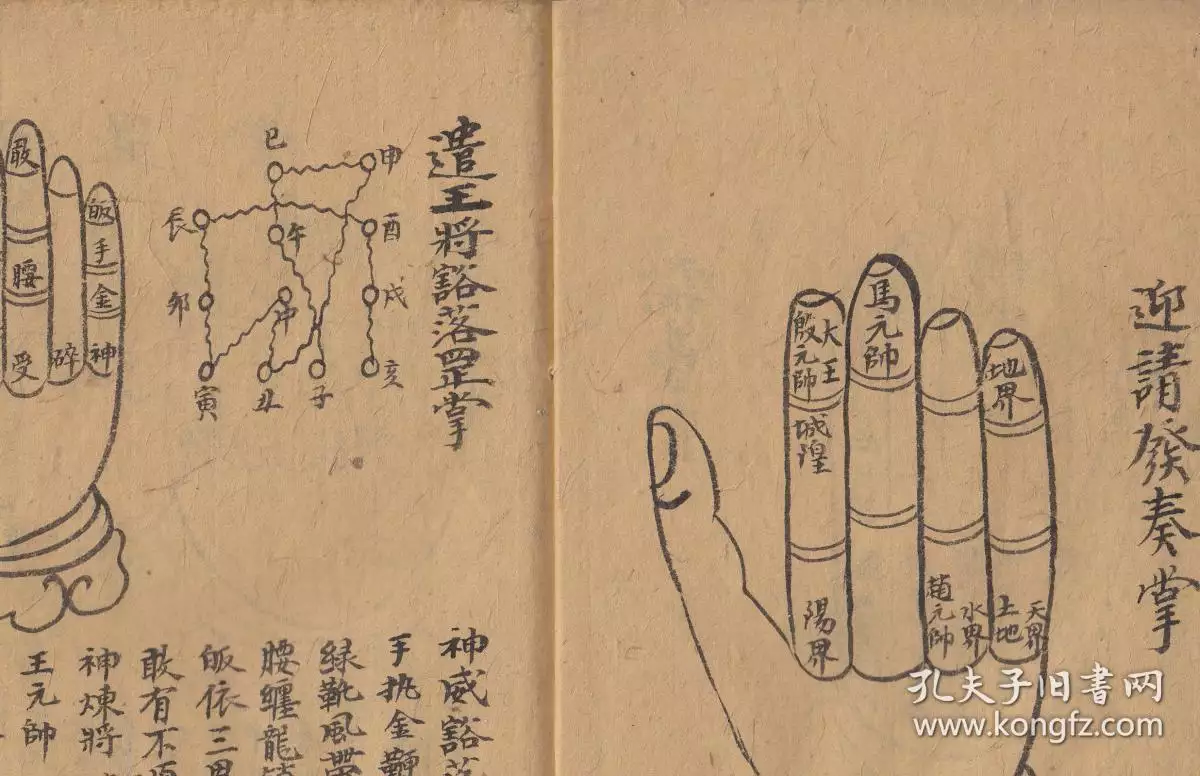 迎請發奏掌
地界
天界
土地
水界
趙元帥
馬元帥
大王
殷元帥
城隍
陽界
遣王將豁落罡掌
巳
申
辰
午
酉
卯
中
戌
寅
丑
子
亥
皈
手
金
神
碎
敢
腰
受
神威豁落
手执金鞭
緑靴風帶
腰纏龍
皈依三界
敢有不
神煉將
王元帥
孔夫子旧书网
www.kongfz.com